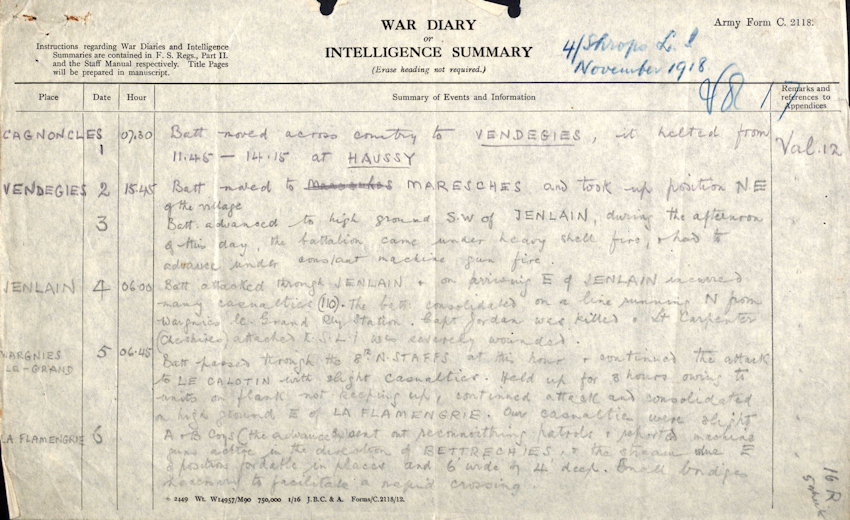 WAR DIARY
or
INTELLIGENCE SUMMARY
(Erase heading not required.)
Army Form C. 2118.
Instructions regarding War Diaries and Intelligence
Summaries are contained in F. S. Regs., Part II.
and the Staff Manual respectively. Title Pages
will be prepared in manuscript.
4/Shrops L.I
November 1918
Place Date Hour Summary of Events and Information Remarks and references to Appendices
CAGNONCLES 1 07.30 Batt moved across country to VENDEGIES, it halted from
11.45 – 14.15 at HAUSSY
Vol. 12
VENDEGIES 2 15.45 Batt moved to MARESCHES and took up position NE
of the village
3 Batt advanced to high ground S.W of JENLAIN, during the afternoon
of this day, the battalion came under heavy shell fire, & had to
advance under constant machine gun fire.
JENLAIN 4 06.00 Batt attacked through JENLAIN & on arriving E of JENLAIN incurred
many casualties (110). The batt consolidated on a line running N from
Wargnies le Grand Rly Station. Capt Jordan was killed & Lt Carpenter
(Cheshires) attached K.S.L.I was severely wounded.
WARGNIES LE-GRAND 5 06.45 Batt passed through the 8th N. STAFFS at this hour & continued the attack
to LE CALOTIN with slight casualties. Held up for 3 hours owing to
units on flank not keeping up, continued attack and consolidated
on high ground E of LA FLAMENGRIE. Our casualties were slight
LA FLAMENGRIE 6 A & B Coys (the advance) sent out reconnoitring patrols & reported machine
guns active in the direction of BETTRECHIES. & the stream due E
of position fordable in places and 6' wide by 4' deep. Small bridges
necessary to facilitate a rapid crossing
2449 Wt. W14957/M90 750,000 1/16 J.B.C. & A. Forms/C.2118/12.
16 R